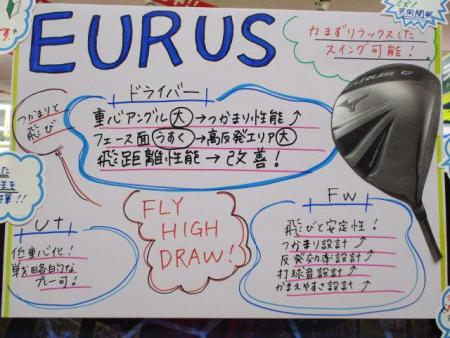 EURUS
力まずリラックスした
スイング可能！
共同開発
EURUS G
ドライバー
つかまりと
飛び
重心アングル大→つかまり性能↑
フェース面うすく→高反発エリア大
飛距離性能→改善！
FLY
HIGH
DRAW!
Ut
低重心化！
戦略的な
プレー可！
FW
飛びと安定性！
つかまり設計↑
反発効率設計↑
打球音設計↑
かまえやすさ設計↑